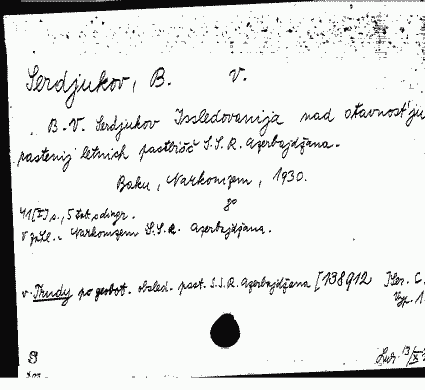 Serdjukov, B. V.
B. V. Serdjukov Issledovanija nad otavnost'ju
rastenij letnich pastbišč S.S.R. Azerbajdžana.
Baku, Narkomzem, 1930.
8°
41 [I] s., 5
V Narkomzem S.S.R. Azerbajdžana.
v. Trudy po geobot. obsled. past. S.S.R. Azerbajdžana [138912 Ser. C.
Vyp. 1.